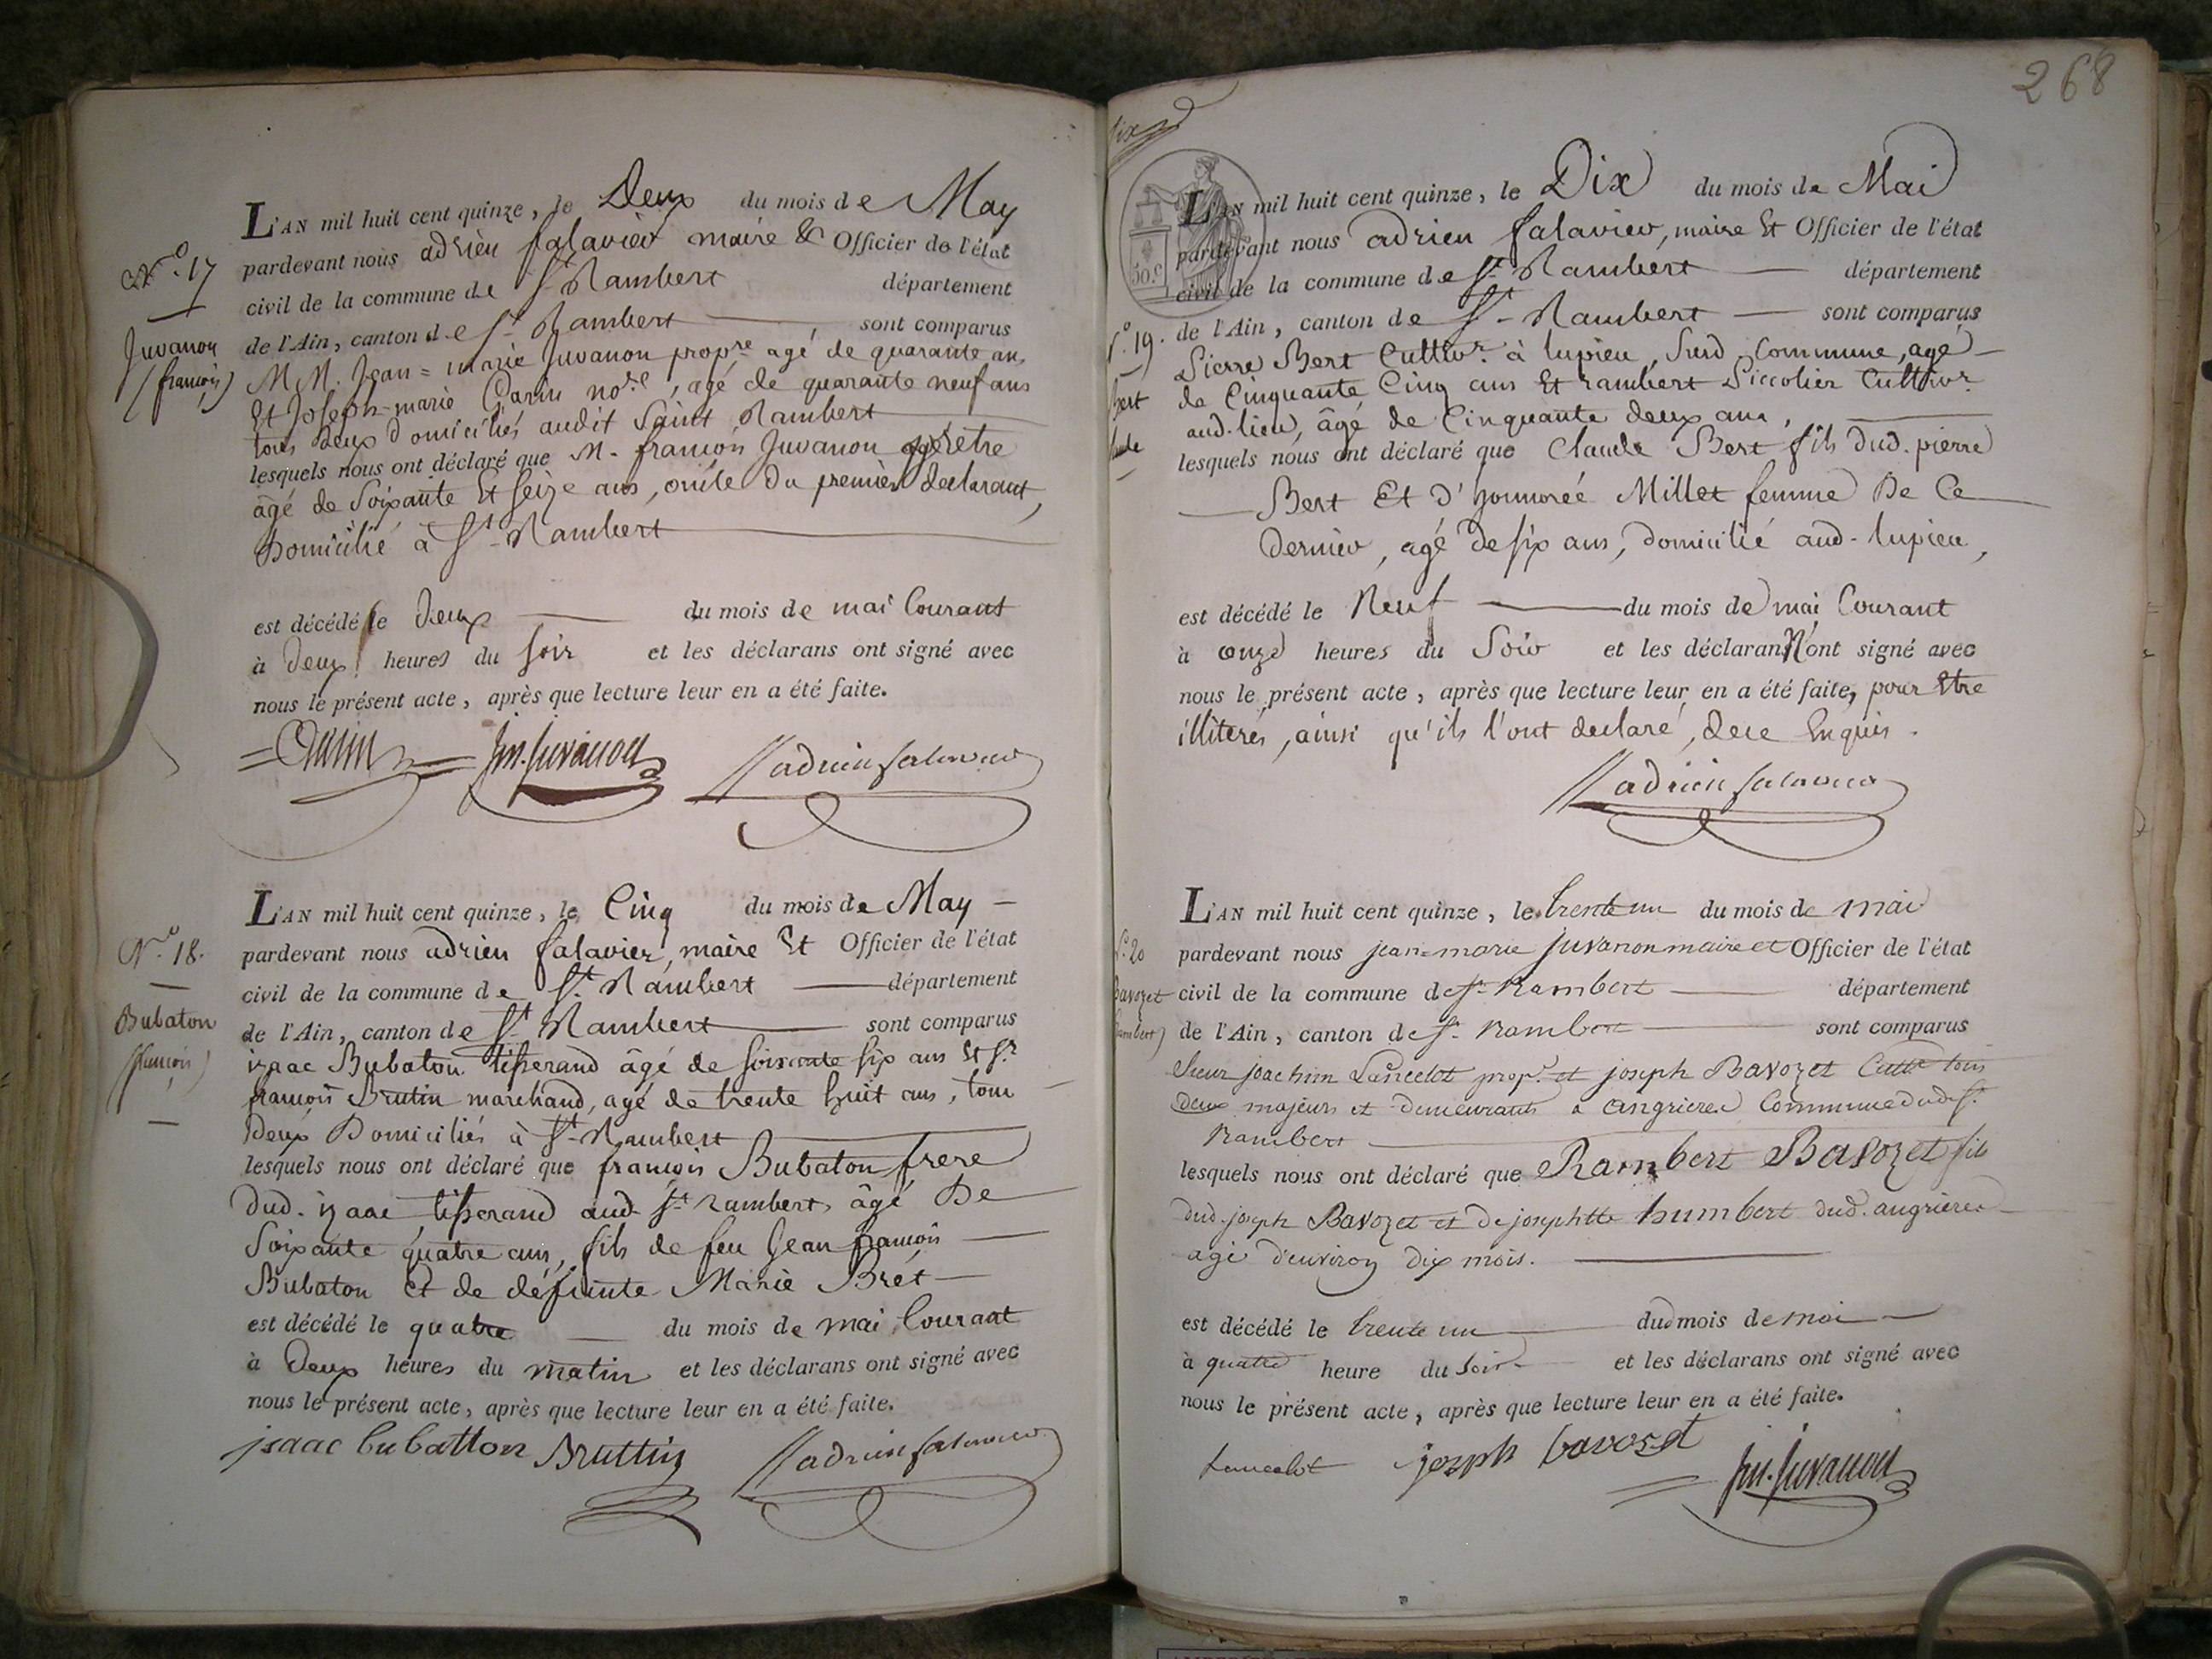 N.o 17
Juvanon
(françois)
L'AN mil huit cent quinze, le Deux du mois de May
pardevant nous adrien falavier maire & Officier de l'état
civil de la commune de St Rambert département
de l'Ain, canton de St Rambert sont comparus
MM. Jean=marie Juvanon propre agé de quarante ans
Et Joseph-marie Garin nore, agé de quarante neuf ans
tous deux domiciliés audit Saint Rambert
lesquels nous ont déclaré que M. françois Juvanon prêtre
âgé de Soixante Et Seize ans, oncle du premier declarant,
Domicilié à St Rambert
est décédé le deux du mois de mai Courant
à deux heures du soir et les déclarans ont signé avec
nous le présent acte, après que lecture leur en a été faite.
Garin jm. juvanon adrien falavier
N.o 18.
Bubaton
(françois)
L'AN mil huit cent quinze, le Cinq du mois de May
pardevant nous adrien falavier, maire Et Officier de l'état
civil de la commune de St Rambert département
de l'Ain, canton de St Rambert sont comparus
izaac Bubaton tisserand âgé de soixante six ans Et Sr
françois Brutin marchand, agé de trente huit ans, tous
Deux Domiciliés à St Rambert
lesquels nous ont déclaré que françois Bubaton frere
dud. izaac tisserand aud. St rambert âgé De
Soixante quatre ans, fils de feu Jean françois
Bubaton et de défunte Marie Brét
est décédé le quatre du mois de mai Courant
à Deux heures du matin et les déclarans ont signé avec
nous le présent acte, après que lecture leur en a été faite.
isaac bubatton Bruttin adrien falavier
268
50.c
o. 19.
Bert
L'AN mil huit cent quinze, le Dix du mois de Mai
pardevant nous adrien falavier, maire Et Officier de l'état
civil de la commune de St Rambert département
de l'Ain, canton de St Rambert sont comparus
Pierre Bert Cultivr. à lupieu, Susd. Commune, agé
de Cinquante Cinq ans Et rambert Piccolier Cultivr.
aud. lieu, âgé de Cinquante deux ans,
lesquels nous ont déclaré que Claude Bert fils dud. pierre
Bert Et D'honnoréé Millet femme De Ce
dernier, agé de six ans, domicilié aud. lupieu,
est décédé le Neuf du mois de mai Courant
à onze heures du Soir et les déclarans N'ont signé avec
nous le présent acte, après que lecture leur en a été faite, pour Etre
illiterés, ainsi qu'ils l'ont declaré, de ce Enquis.
adrien falavier
o. 20
Bavozet
(rambert)
L'AN mil huit cent quinze, le trente un du mois de mai
pardevant nous jean=marie juvanon maire et Officier de l'état
civil de la commune de St Rambert département
de l'Ain, canton de St rambert sont comparus
Sieur joachim Lancelot propr. et joseph Bavozet tous
deux majeurs et demeurants a angrieres Commune dud. St
Rambert
lesquels nous ont déclaré que Rambert Bavozet fils
dud. joseph Bavozet et de josephtte humbert dud. angrieres
agé d'environ dix mois.
est décédé le trente un dud mois de mai
à quatre heure du soir et les déclarans ont signé avec
nous le présent acte, après que lecture leur en a été faite.
Lancelot joseph bavozet jm. juvanon